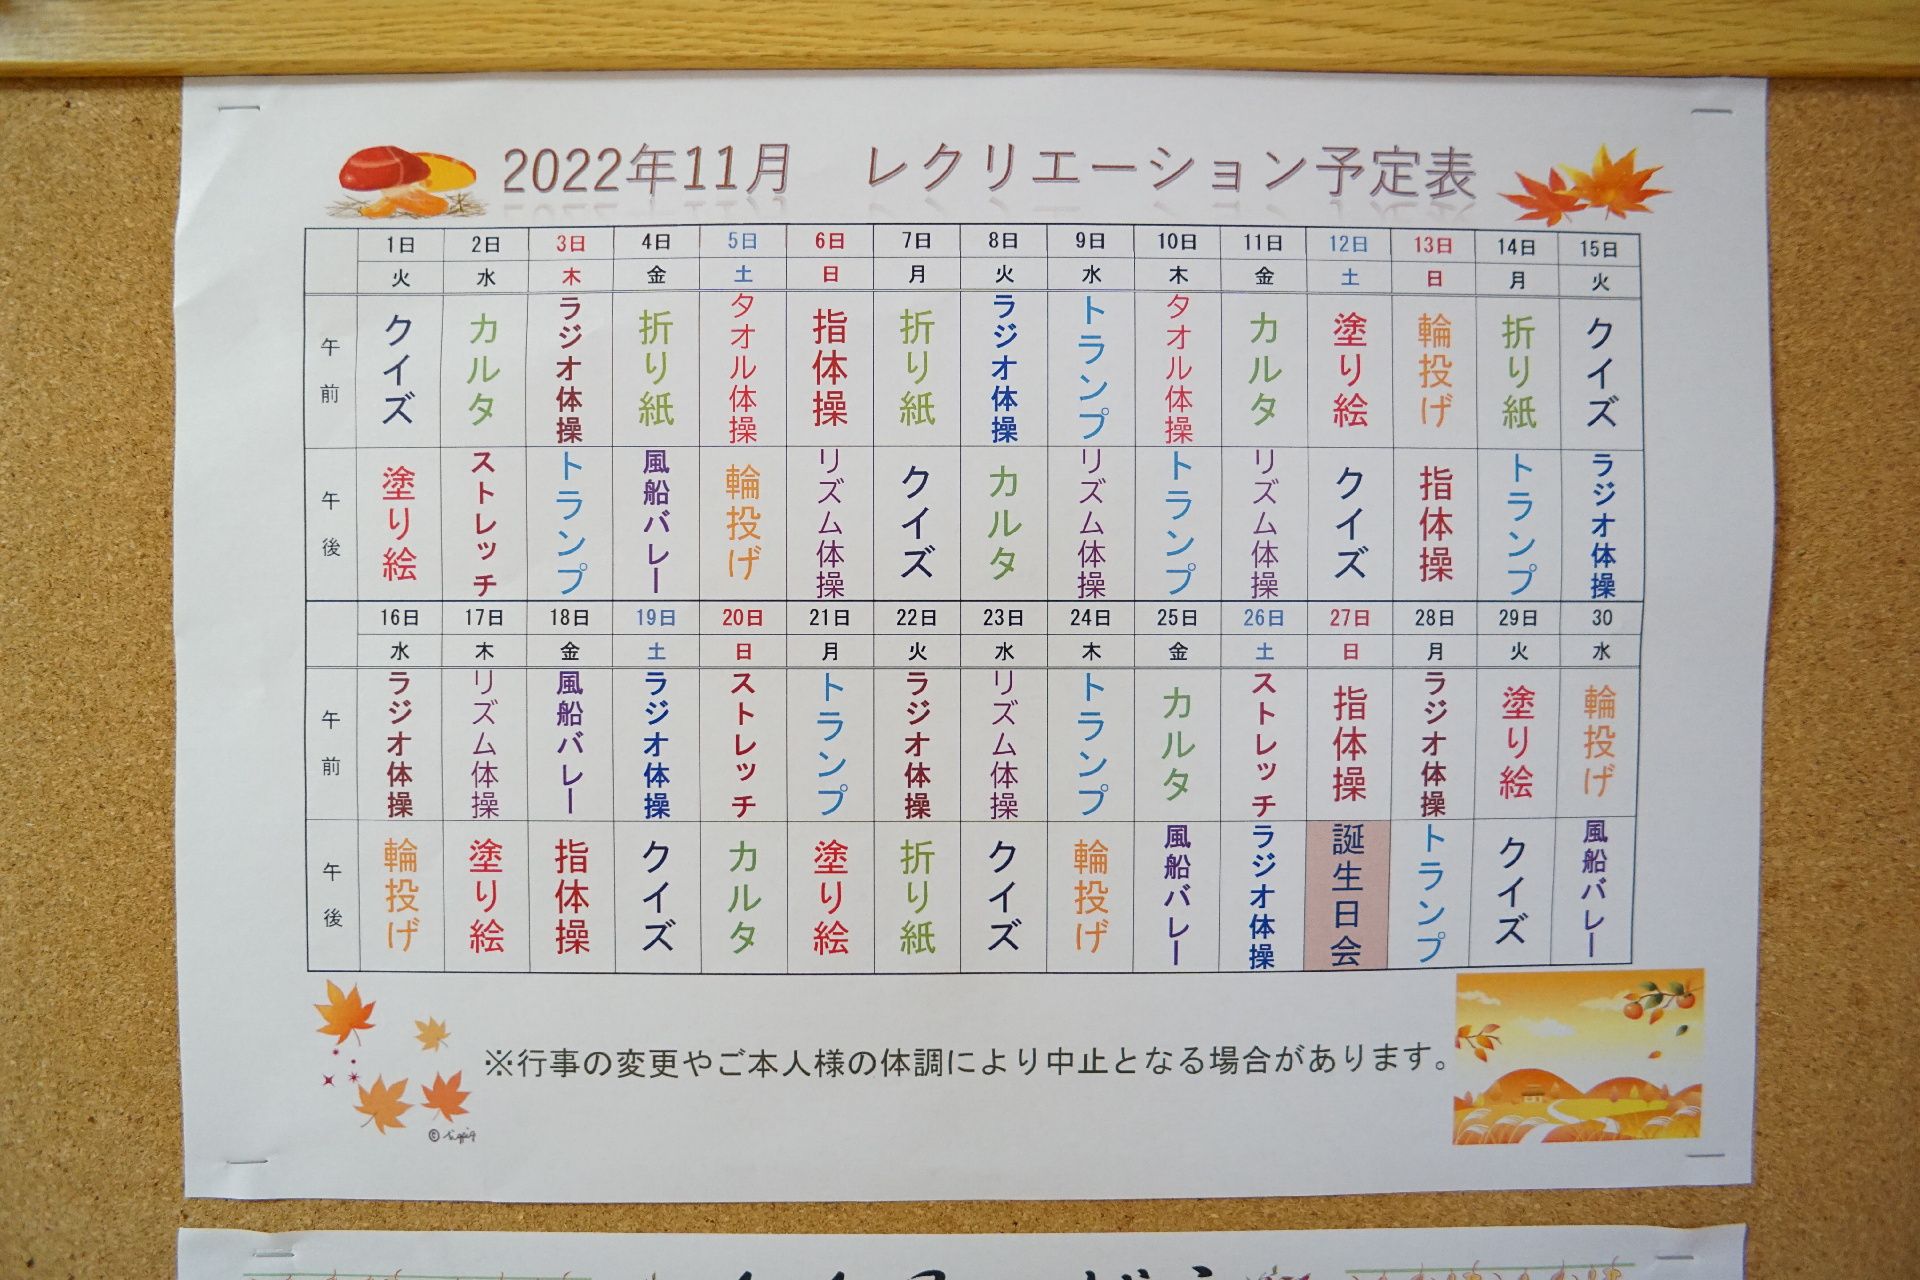 2022年11月 レクリエーション予定表
1日 2日 3日 4日 5日 6日 7日 8日 9日 10日 11日 12日 13日 14日 15日
火 水 木 金 土 日 月 火 水 木 金 土 日 月 火
午前 クイズ カルタ ラジオ体操 折り紙 タオル体操 指体操 折り紙 ラジオ体操 トランプ タオル体操 カルタ 塗り絵 輪投げ 折り紙 クイズ
午後 塗り絵 ストレッチ トランプ 風船バレー 輪投げ リズム体操 クイズ カルタ リズム体操 トランプ リズム体操 クイズ 指体操 トランプ ラジオ体操
16日 17日 18日 19日 20日 21日 22日 23日 24日 25日 26日 27日 28日 29日 30
水 木 金 土 日 月 火 水 木 金 土 日 月 火 水
午前 ラジオ体操 リズム体操 風船バレー ラジオ体操 ストレッチ トランプ ラジオ体操 リズム体操 トランプ カルタ ストレッチ 指体操 ラジオ体操 塗り絵 輪投げ
午後 輪投げ 塗り絵 指体操 クイズ カルタ 塗り絵 折り紙 クイズ 輪投げ 風船バレー ラジオ体操 誕生日会 トランプ クイズ 風船バレー
※行事の変更やご本人様の体調により中止となる場合があります。